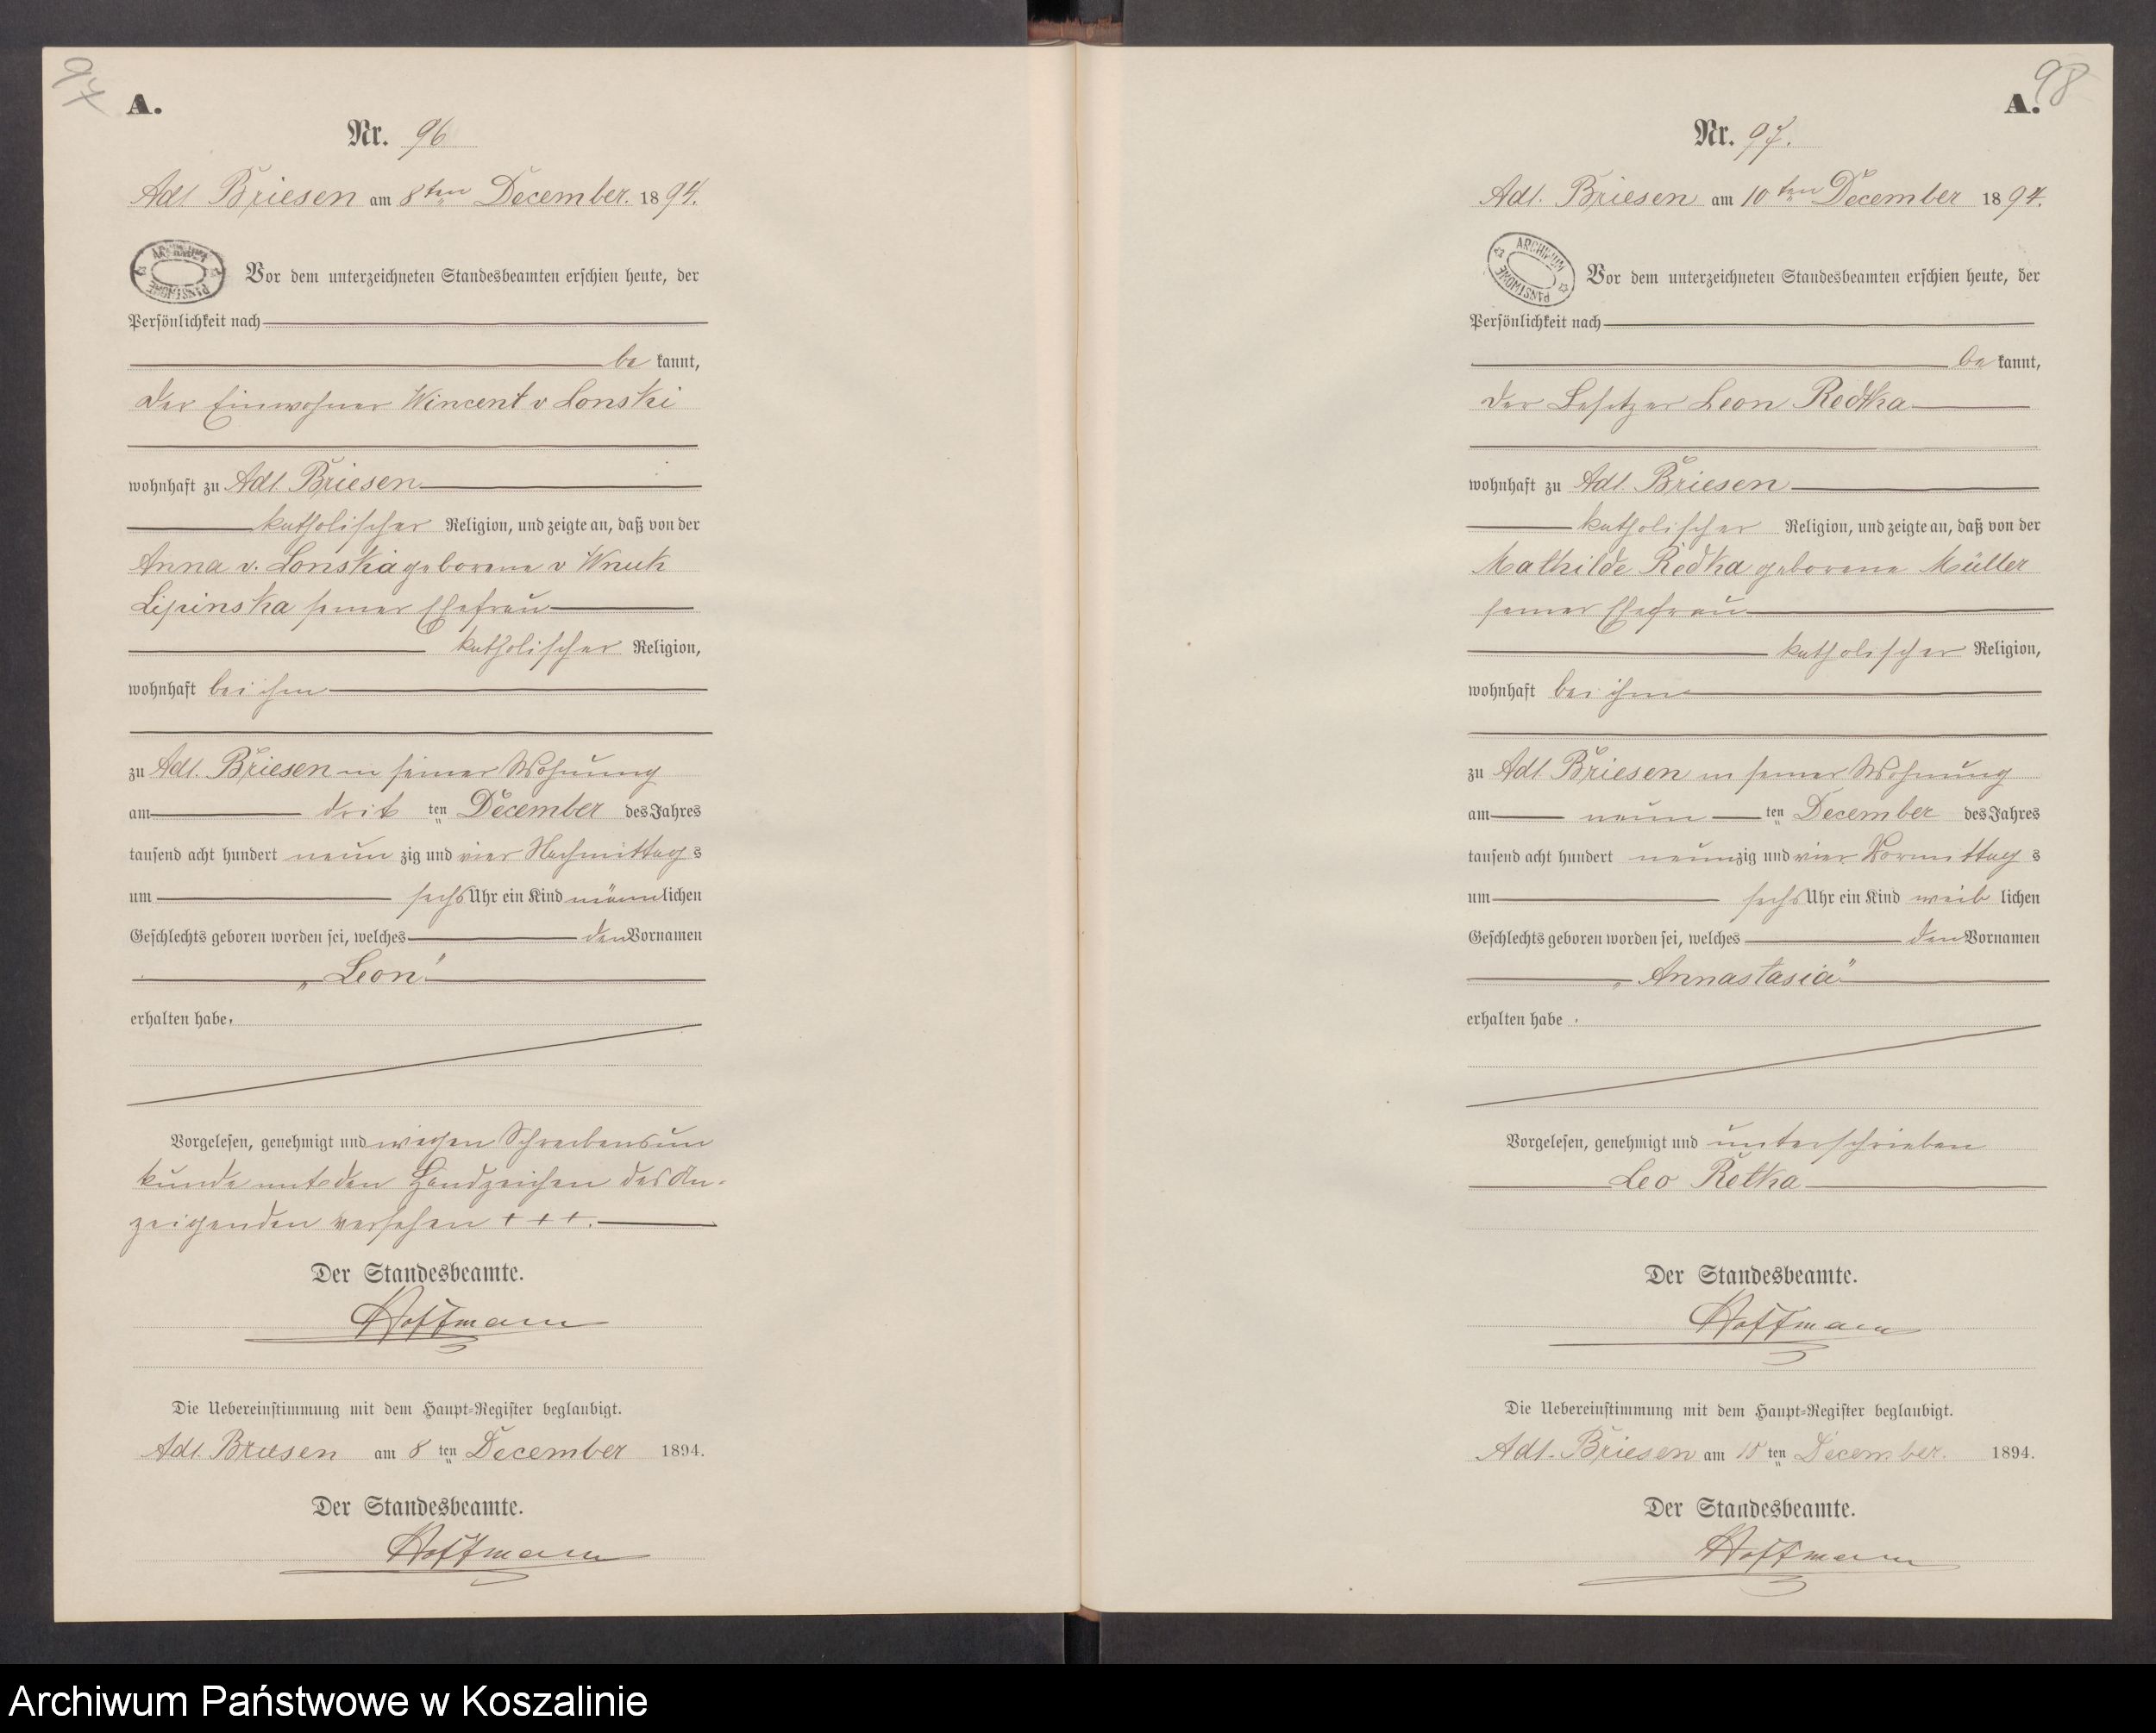 97
A.
Nr. 96
Adl Briesen am 8ten December. 1894.
ARCHIWUM PAŃSTWOWE
Vor dem unterzeichneten Standesbeamten erschien heute, der
Persönlichkeit nach
be kannt,
der Einwohner Wincent v Lonski
wohnhaft zu Adl Briesen
katholischer Religion, und zeigte an, daß von der
Anna v. Lonska geborene v Wnuk
Lipinska seiner Ehefrau
katholischer Religion,
wohnhaft bei ihm
zu Adl. Briesen in seiner Wohnung
am drit ten December des Jahres
tausend acht hundert neun zig und vier Nachmittag s
um sechs Uhr ein Kind männlichen
Geschlechts geboren worden sei, welches den Vornamen
„Leon“
erhalten habe.
Vorgelesen, genehmigt und wegen Schreibensun
kunde mit den Handzeichen des An-
zeigenden versehen + + +.
Der Standesbeamte.
Hoffmann
Die Uebereinstimmung mit dem Haupt-Register beglaubigt.
Adl. Briesen am 8 ten December 1894.
Der Standesbeamte.
Hoffmann
98
A.
Nr. 97.
Adl. Briesen am 10ten December 1894.
ARCHIWUM PAŃSTWOWE
Vor dem unterzeichneten Standesbeamten erschien heute, der
Persönlichkeit nach
be kannt,
der Besitzer Leon Redtka
wohnhaft zu Adl. Briesen
katholischer Religion, und zeigte an, daß von der
Mathilde Redka geborene Müller
seiner Ehefrau
katholischer Religion,
wohnhaft bei ihm
zu Adl. Briesen in seiner Wohnung
am neun ten December des Jahres
tausend acht hundert neunzig und vier Vormittag s
um sechs Uhr ein Kind weib lichen
Geschlechts geboren worden sei, welches den Vornamen
„Annastasia“
erhalten habe.
Vorgelesen, genehmigt und unterschrieben
Leo Retka
Der Standesbeamte.
Hoffmann
Die Uebereinstimmung mit dem Haupt-Register beglaubigt.
Adl. Briesen am 10 ten December. 1894.
Der Standesbeamte.
Hoffmann
Archiwum Państwowe w Koszalinie